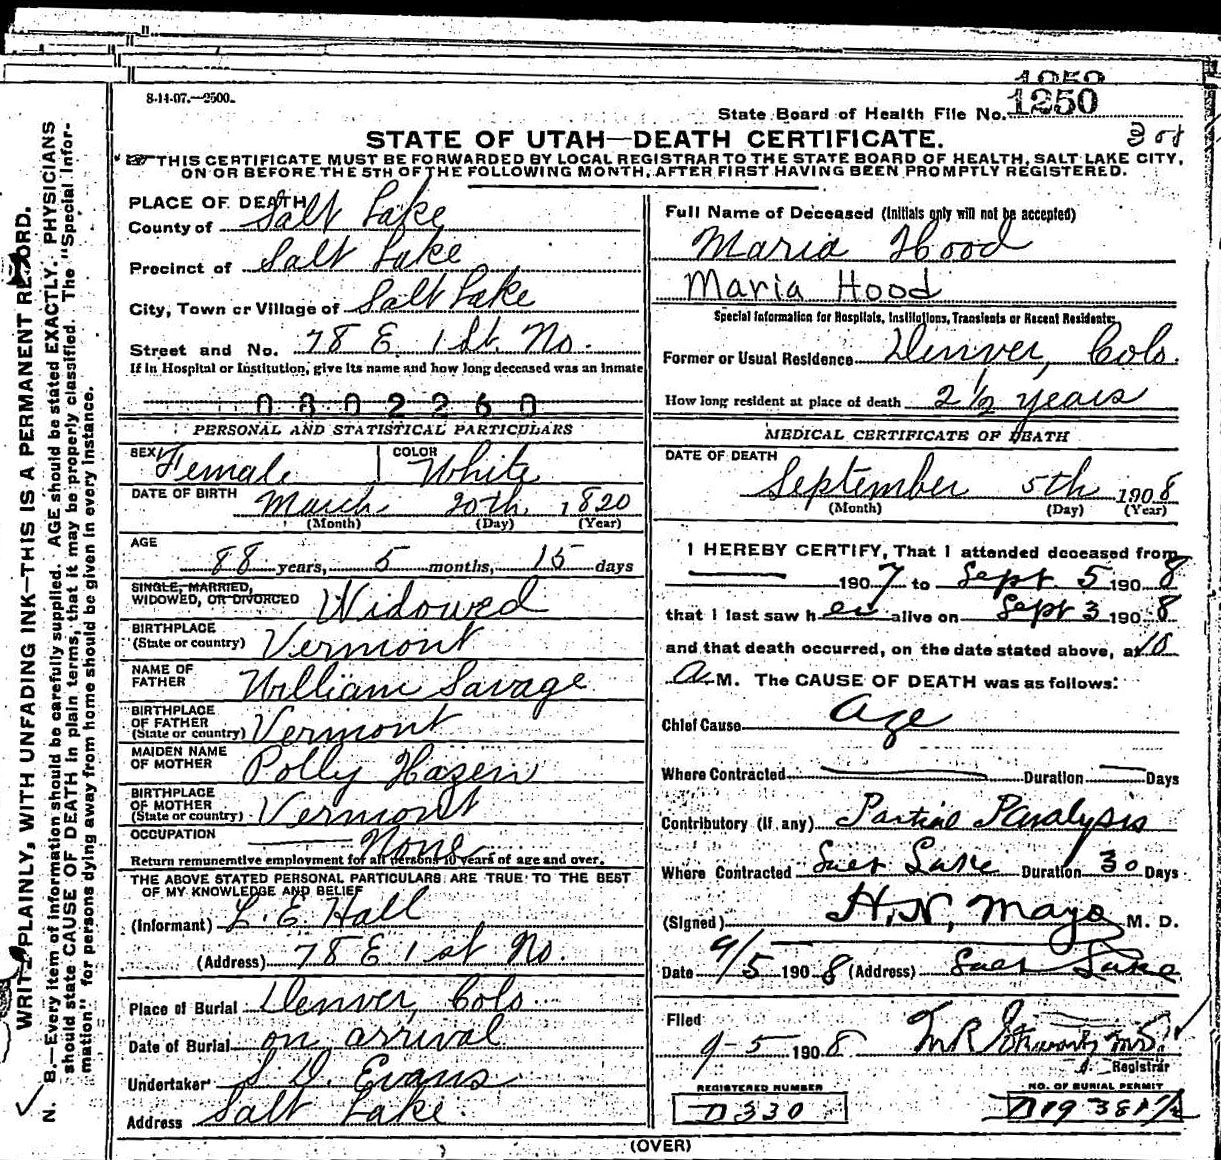 8-14-07.—2500.
State Board of Health File No. 1250
STATE OF UTAH—DEATH CERTIFICATE.
THIS CERTIFICATE MUST BE FORWARDED BY LOCAL REGISTRAR TO THE STATE BOARD OF HEALTH, SALT LAKE CITY,
ON OR BEFORE THE 5TH OF THE FOLLOWING MONTH, AFTER FIRST HAVING BEEN PROMPTLY REGISTERED.
WRITE PLAINLY, WITH UNFADING INK—THIS IS A PERMANENT RECORD.
N. B.—Every item of information should be carefully supplied. AGE should be stated EXACTLY. PHYSICIANS
should state CAUSE OF DEATH in plain terms, that it may be properly classified. The "Special Infor-
mation" for persons dying away from home should be given in every instance.
PLACE OF DEATH
County of Salt Lake
Precinct of Salt Lake
City, Town or Village of Salt Lake
Street and No. 78 E 1 St. No.
If in Hospital or Institution, give its name and how long deceased was an Inmate
0802260
PERSONAL AND STATISTICAL PARTICULARS
SEX Female COLOR White
DATE OF BIRTH March 20th, 1820
(Month) (Day) (Year)
AGE
88 years, 5 months, 15 days
SINGLE, MARRIED,
WIDOWED, OR DIVORCED Widowed
BIRTHPLACE
(State or country) Vermont
NAME OF
FATHER William Savage
BIRTHPLACE
OF FATHER
(State or country) Vermont
MAIDEN NAME
OF MOTHER Polly Hazen
BIRTHPLACE
OF MOTHER
(State or country) Vermont
OCCUPATION None
Return remunerative employment for all persons 10 years of age and over.
THE ABOVE STATED PERSONAL PARTICULARS ARE TRUE TO THE BEST
OF MY KNOWLEDGE AND BELIEF
(Informant) L. E. Hall
(Address) 78 E 1 st No.
Place of Burial Denver, Colo
Date of Burial on arrival
Undertaker S. D. Evans
Address Salt Lake.
Full Name of Deceased (Initials only will not be accepted)
Maria Hood
Maria Hood
Special Information for Hospitals, Institutions, Transients or Recent Residents:
Former or Usual Residence Denver, Colo.
How long resident at place of death 2 1/2 years
MEDICAL CERTIFICATE OF DEATH
DATE OF DEATH
September 5th 1908
(Month) (Day) (Year)
I HEREBY CERTIFY, That I attended deceased from
1907 to Sept 5 1908
that I last saw her alive on Sept 3 1908
and that death occurred, on the date stated above, at 10
a. M. The CAUSE OF DEATH was as follows:
Chief Cause Age
Where Contracted Duration Days
Contributory (if any) Partial Paralysis
Where Contracted Salt Lake Duration 30 Days
(Signed) H. N. Mayo M. D.
Date 9/5 1908 (Address) Salt Lake
Filed
9-5 1908
Registrar
REGISTERED NUMBER
D330
NO. OF BURIAL PERMIT
(OVER)